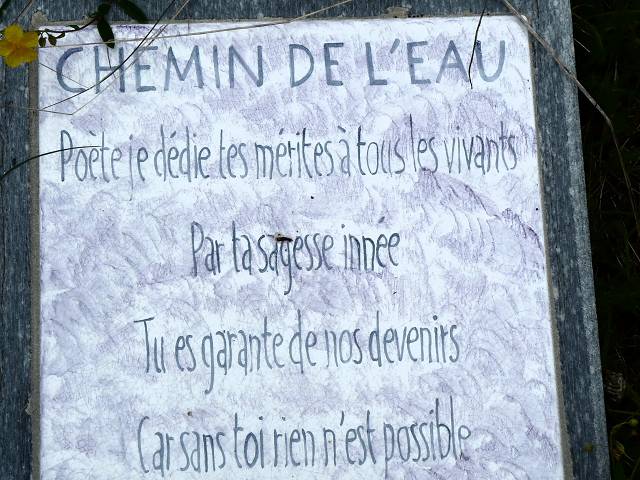 CHEMIN DE L'EAU
Poète je dédie tes mérites à tous les vivants
Par ta sagesse innée
Tu es garante de nos devenirs
Car sans toi rien n'est possible